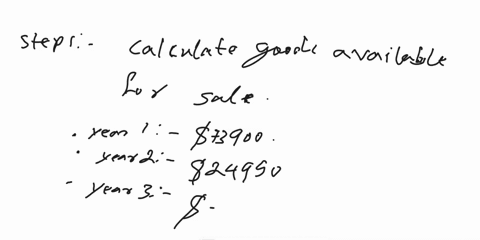 steps:- calculate goods available
for sale.
• year 1:- $73900.
• year 2:- $24950
- year 3:- $-